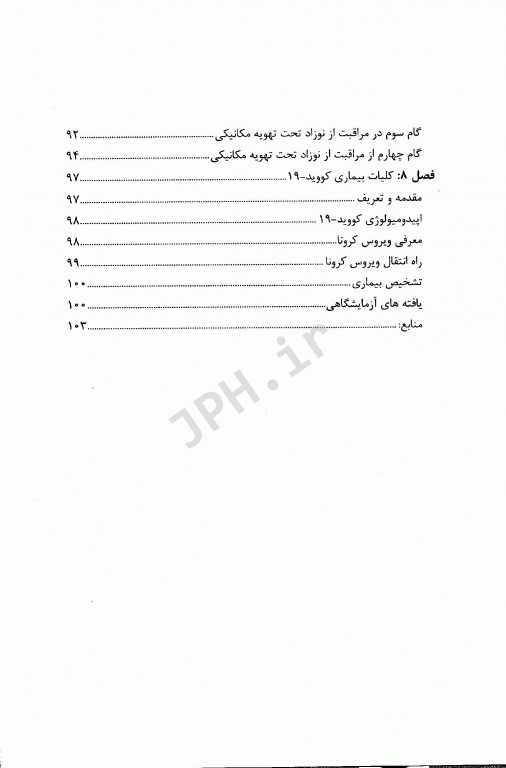 گام سوم در مراقبت از نوزاد تحت تهویه مکانیکی......۹۲
گام چهارم از مراقبت از نوزاد تحت تهویه مکانیکی......۹۴
فصل ۸: کلیات بیماری کووید-۱۹......۹۷
مقدمه و تعریف......۹۷
اپیدومیولوژی کووید-۱۹......۹۸
معرفی ویروس کرونا......۹۸
راه انتقال ویروس کرونا......۹۹
تشخیص بیماری......۱۰۰
یافته های آزمایشگاهی......۱۰۰
منابع:......۱۰۳
JPH.ir